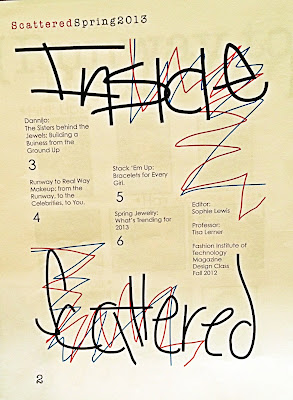 ScatteredSpring2013
Inside
Dannijo:
The Sisters behind the
Jewels; Building a
Buiness from the
Ground Up
3
Runway to Real Way
Makeup; from the
Runway, to the
Celebrities, to You.
4
Stack 'Em Up:
Bracelets for Every
Girl.
5
Spring Jewelry:
What's Trending for
2013
6
Editor:
Sophie Lewis
Professor:
Tisa Lerner
Fashion Institute of
Technology
Magazine
Design Class
Fall 2012
Scattered
2